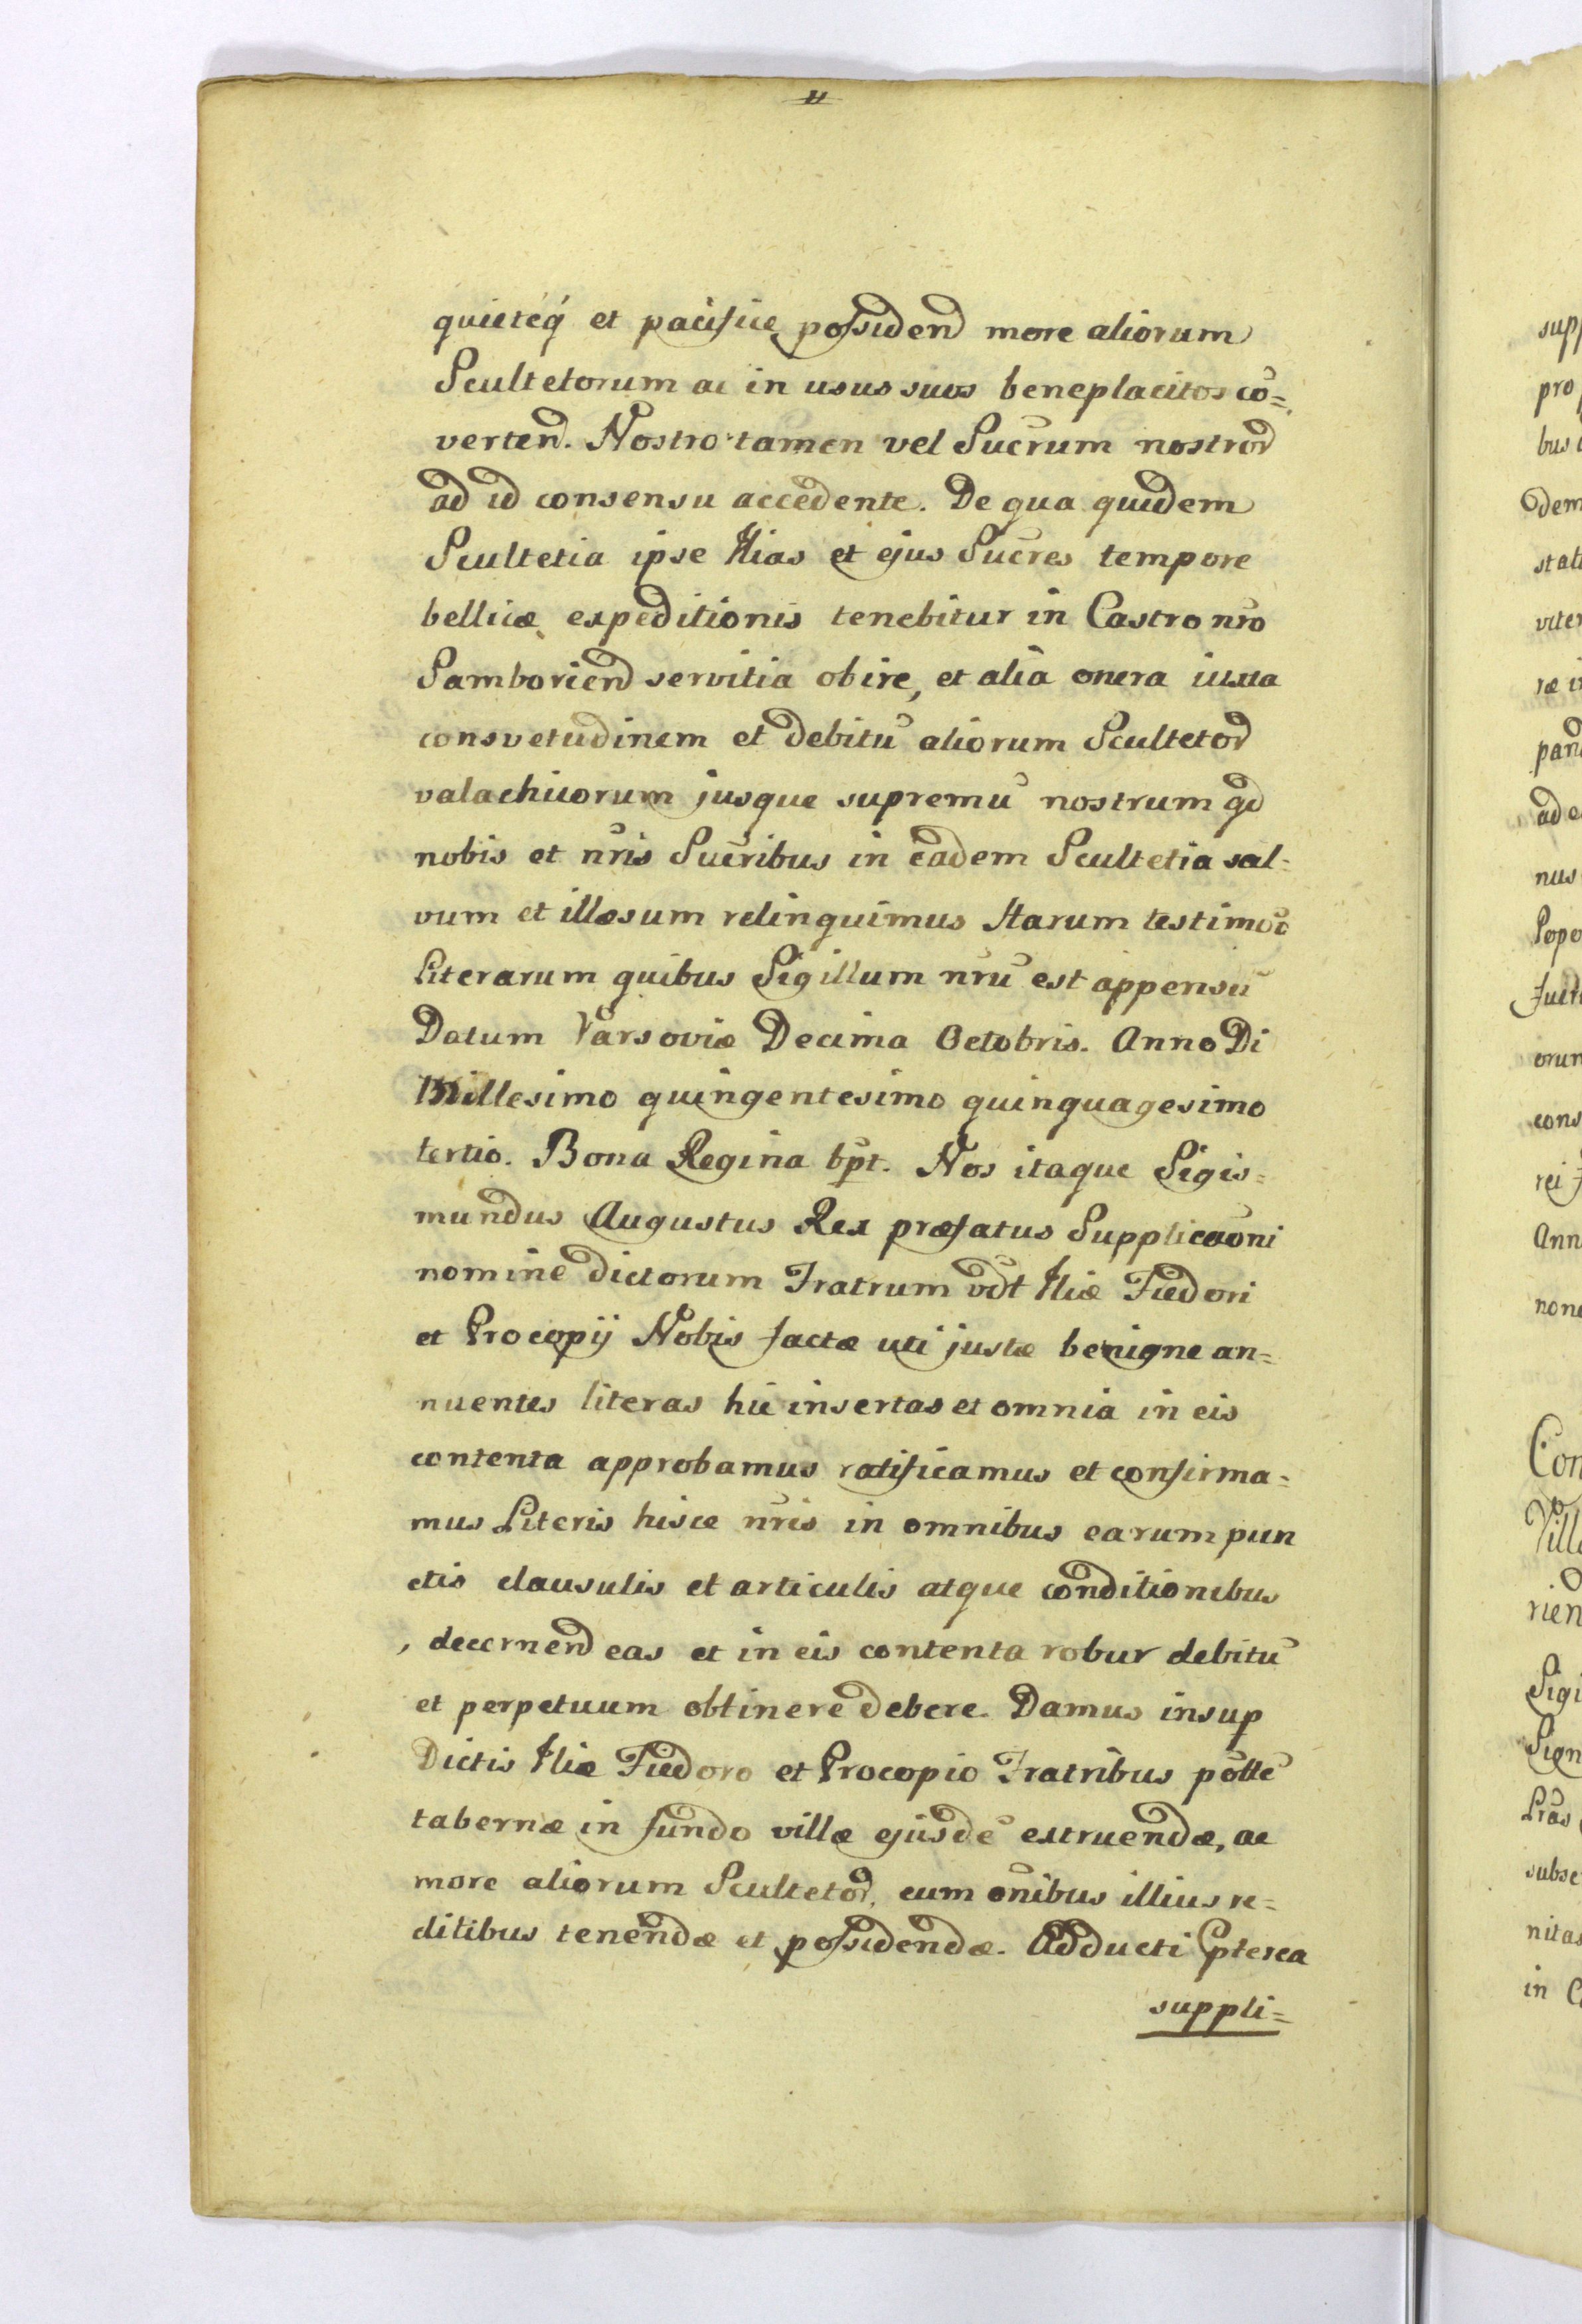 quieteq́ et pacifice possidend more aliorum
Scultetorum ac in usus suos beneplacitos cō=
verten̄d. Nostro tamen vel Suc̄rum nostrord
ad id consensu accedente. De qua quidem
Scultetia ipse Ilias et ejus Suc̄res tempore
bellicæ expeditionis tenebitur in Castro nr̄o
Samborien̄d servitia obire, et alia onera iuxta
consvetudinem et debitū aliorum Scultetord
valachicorum jusque supremū nostrum qd
nobis et nr̄is Suc̄ribus in eadem Scultetia sal=
vum et illæsum relinquimus Harum testimō
Literarum quibus Sigillum nr̄ū est appensū
Datum Varsoviæ Decima Octobris. Anno Di
Millesimo quingentesimo quinquagesimo
tertio. Bona Regina pt. Nos itaque Sigis=
mundus Augustus Rex præfatus Supplicaōni
nomine dictorum Fratrum vdt Iliæ Fiedori
et Procopij Nobis factæ uti justæ benigne an=
nuentes literas hic insertas et omnia in eis
contenta approbamus ratificamus et confirma=
mus Literis hisce nr̄is in omnibus earum pun
ctis clausulis et articulis atque conditionibus
, decernend eas et in eis contenta robur debitū
et perpetuum obtinere debere. Damus insup
Dictis Iliæ Fiedoro et Procopio Fratribus põtte
tabernæ in fundo villæ ejusdē extruendæ, ac
more aliorum Scultetord, cum om̄nibus illius re=
ditibus tenendæ et possidendæ. Adducti pterea
suppli=
sup
pro
bus
dem
stat
viter
ræ i
pan
ad e
nus
Popo
orun
cons
rei
Ann
non
Con
Vill
rien
Sigi
Sign
Lr̄as
subse
nitas
in C